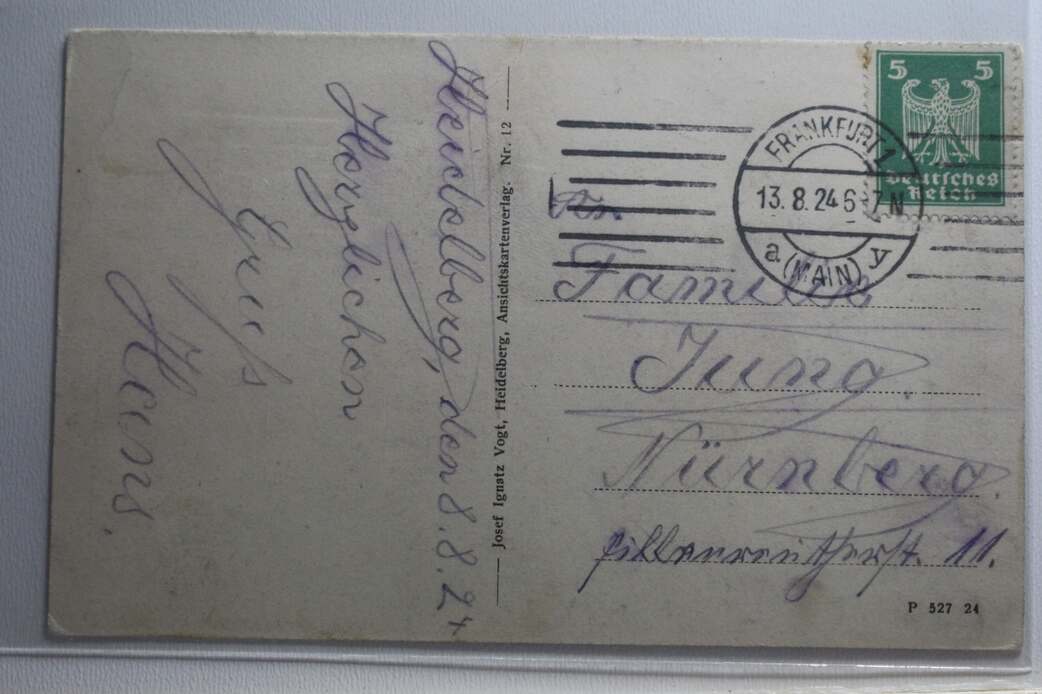 Heidelberg, den 8.8.24
Herzlichen
Gruß
Hans.
Josef Ignatz Vogt, Heidelberg, Ansichtskartenverlag. Nr. 12
5 5
Deutsches
Reich
FRANKFURT
13.8.24 6-7 N
a (MAIN) y
An
Familie
Jung.
Nürnberg.
Pillenreutherst. 11.
P 527 24